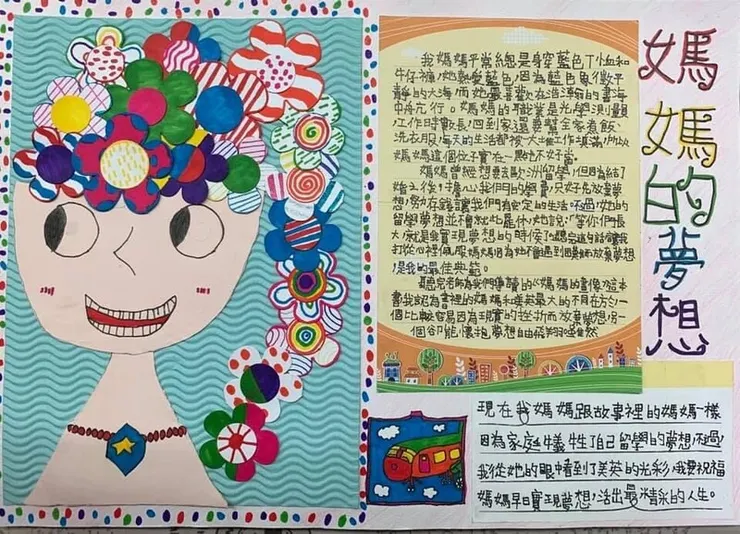 媽媽的夢想
我媽媽平常總是身穿藍色T恤和
牛仔褲,她熱愛藍色,因為藍色象徵平
靜的大海,而她最喜歡在浩瀚的書海
中航行。媽媽的職業是光學測量員
工作時數長,回到家還要幫全家煮飯、
洗衣服,每天的生活都被大量工作填滿,所以
媽媽這個位子實在一點也不好當。
媽媽曾經想要去歐洲留學,但因為結了
婚之後,擔心我們的學費,只好先放棄夢
想,努力存錢讓我們有安定的生活。不過,她的
留學夢想並不會就此罷休,她說:「等你們長
大,就是我實現夢想的時候!」聽完這句話,讓我
打從心裡佩服媽媽,因為她不會遇到困難而放棄夢想
,是我的最佳典範。
聽完老師為我們傳讀的《媽媽的畫像》這本
書,我認為書裡的媽媽和美英最大的不同在於,一
個比較容易因為現實的挫折而放棄夢想,另一
個卻能懷抱夢想自由飛翔
現在我媽媽跟故事裡的媽媽一樣
因為家庭犧牲了自己留學的夢想,不過
我從她的眼中看到了美英的光彩,我要祝福
媽媽早日實現夢想,活出最精彩的人生。